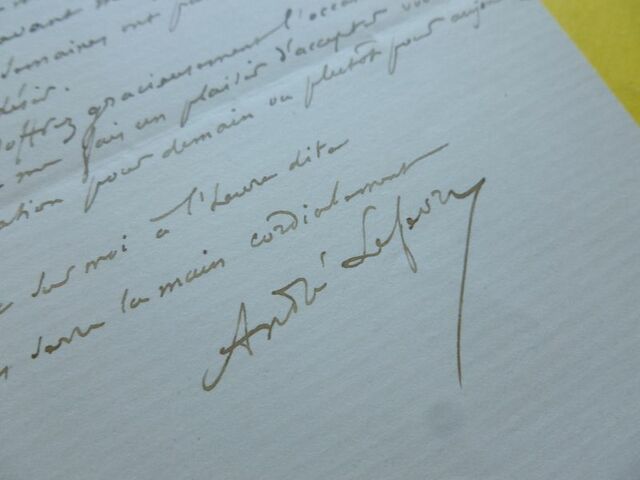 avant
semaines ont pa
désir.
offrez gracieusement l'occa
me fais un plaisir d'accepter vo
ation pour demain ou plutôt pour aujou
sur moi à l'heure dite
serre la main cordialement
André Lefèvre